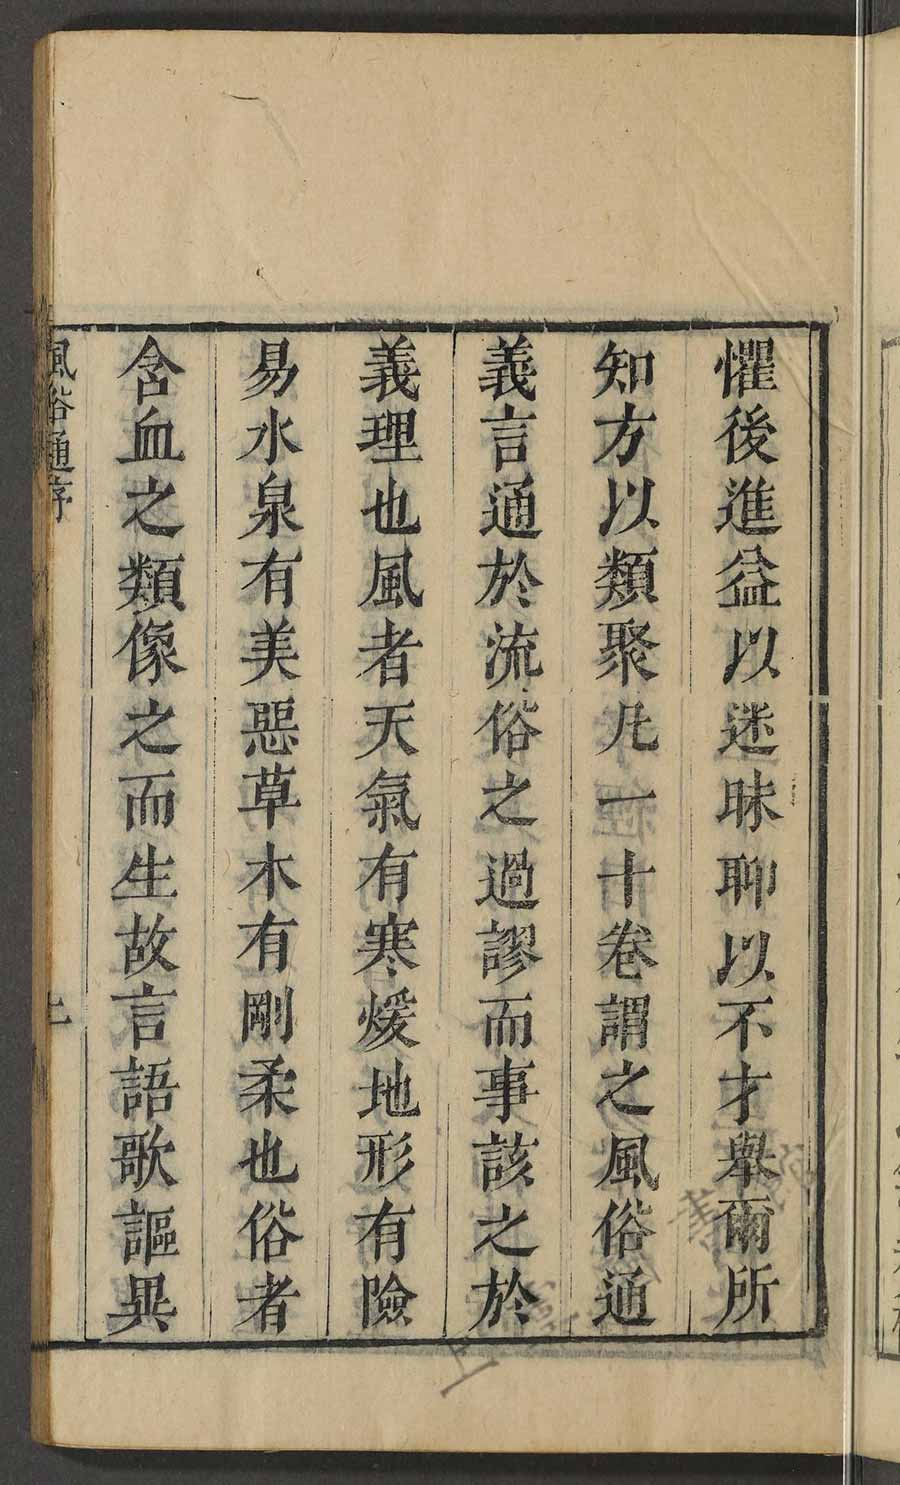 懼後進益以迷昧聊以不才舉爾所
知方以類聚凡一十卷謂之風俗通
義言通於流俗之過謬而事該之於
義理也風者天氣有寒煖地形有險
易水泉有美惡草木有剛柔也俗者
含血之類像之而生故言語歌謳異
風俗通序